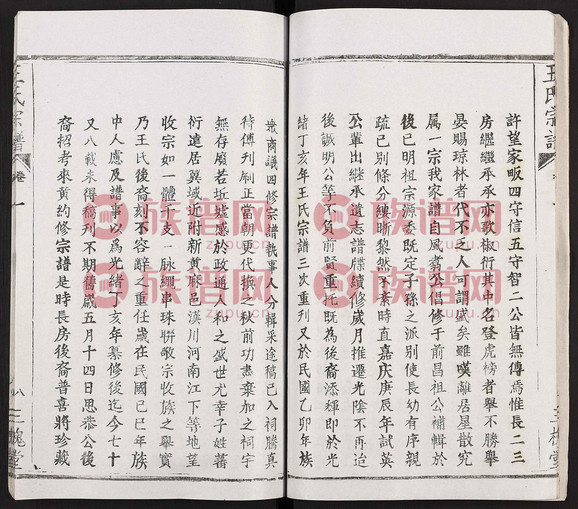 許望家畈四守信五守智二公皆無傳焉惟長二三
房繼繼承承亦歌椒衍其中名登虎榜者舉不勝舉
晏賜琼林者代不乏人可謂盛矣雖嘆離居星散究
属一宗我家譜自風翥公倡修于前昌祖公補輯於
後已明祖宗源委既定子孫之派别使長幼有序親
疏已别條分縷晰黎然不紊時直嘉慶庚辰年試英
公輩出継承遺志譜牒續修歲月推遷光陰不再迨
後誠明公等不負前賢重托既為後裔添輝即於光
緒丁亥年王氏宗譜三次重刊又於民國乙卯年族
衆商議四修宗譜執事人分輯采途稿已入祠勝真
待傳刊刷正當朝更代換之秋前功盡棄加之祠宇
無存廢若坵墟感於政通人和之盛世尤幸子姓蕃
衍遺居異域近附新黄麻邑漢川河南江下等地望
收宗如一體千支一脉繩串珠聨敬宗收族之舉實
乃王氏後裔刻不容辭之重任歲在民國己巳年族
中人應及譜事以為光緒丁亥年纂修後迄今七十
又八載未得稿刊不期舊歲五月十四日思恭公後
裔招考來黄約修宗譜是時長房後裔普喜將珍藏
王氏宗譜
卷一
八
三槐堂
王氏宗譜
三槐堂
族谱网
zupu.cn
族谱网
zupu.cn
族谱网
zupu.cn
族谱网
zupu.cn